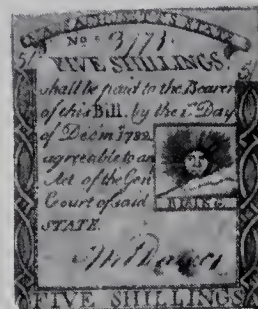 No. 3173
FIVE SHILLINGS
shall be paid to the Bearer
of this Bill, by the 1st Day
of Decm 1782
agreeable to an
Act of the Gen
Court of said
STATE.
RISING
FIVE SHILLINGS